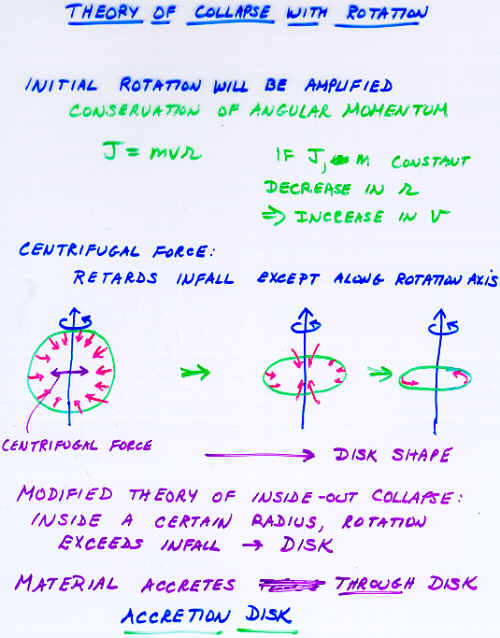 THEORY OF COLLAPSE WITH ROTATION
INITIAL ROTATION WILL BE AMPLIFIED
CONSERVATION OF ANGULAR MOMENTUM
J = mvr
IF J, m CONSTANT
DECREASE IN r
⇒ INCREASE IN v
CENTRIFUGAL FORCE:
RETARDS INFALL EXCEPT ALONG ROTATION AXIS
CENTRIFUGAL FORCE
DISK SHAPE
MODIFIED THEORY OF INSIDE-OUT COLLAPSE:
INSIDE A CERTAIN RADIUS, ROTATION
EXCEEDS INFALL → DISK
MATERIAL ACCRETES THROUGH DISK
ACCRETION DISK